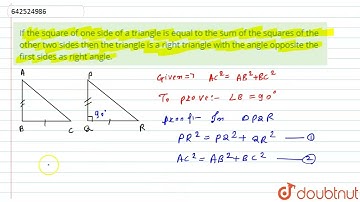 642524986
If the square of one side of a triangle is equal to the sum of the squares of the
other two sides then the triangle is a right triangle with the angle opposite the
first sides as right angle.
Given => AC² = AB² + BC²
To prove:- ∠B = 90°
proof:- In △PQR
PR² = PQ² + QR² — ①
AC² = AB² + BC² — ②
A
B
C
P
90°
Q
R
doubtnut